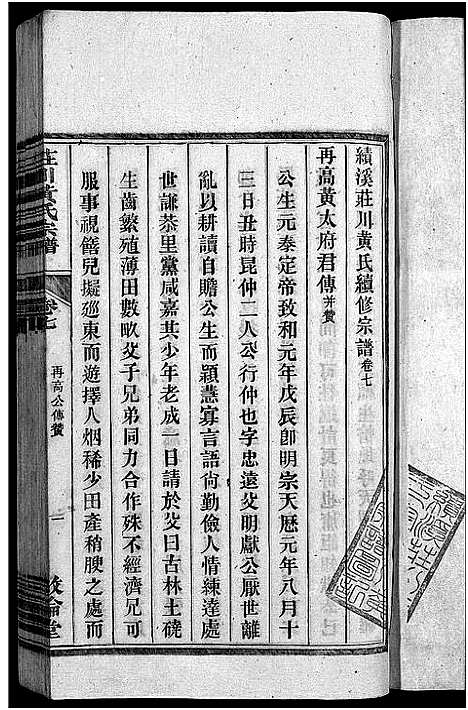 績溪莊川黃氏續修宗譜卷七
再高黃太府君傳并贊
公生元泰定帝致和元年戊辰卽明宗天曆元年八月十
三日丑時昆仲二人公行仲也字忠遠父明獻公厭世離
亂以耕讀自贍公生而穎慧寡言語尙勤儉人情練達處
世謙恭里黨咸嘉其少年老成一日請於父曰古林土磽
生齒繁殖薄田數畝父子兄弟同力合作殊不經濟兄可
服事視簪兒擬廵東而遊擇人烟稀少田產稍腴之處而
莊川黃氏宗譜
卷七
再高公傳贊
一
敘倫堂